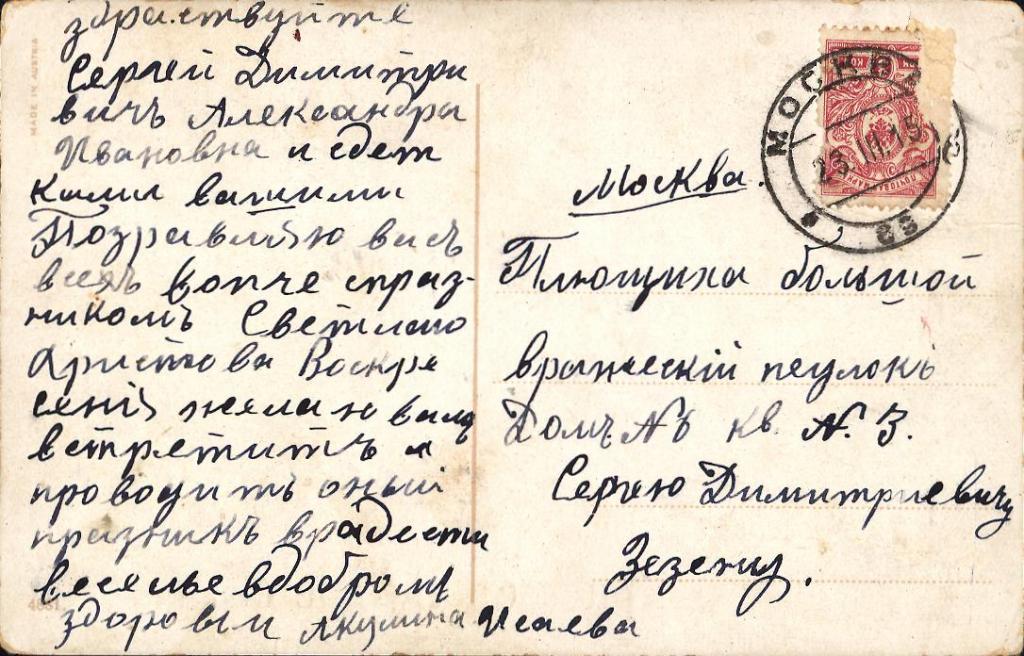 здраствуйте
Сергей Димитри
вичъ Александра
Ивановна и сдет
ками вашими
Поздравляю васъ
всехъ вопче спраз-
никомъ Светлаго
Христова Воскре
сенія желаю вамъ
встретитъ и
проводитъ оный
празникъ врадости
веселье вдобромъ
здоровьи Акулина Исаева
MADE IN AUSTRIA
МОСКВА
23.III.15
Москва.
Плющиха большой
вражескій пеулокъ
Домъ №6 кв. №. 3.
Сергею Димитриевичу
Зезену.